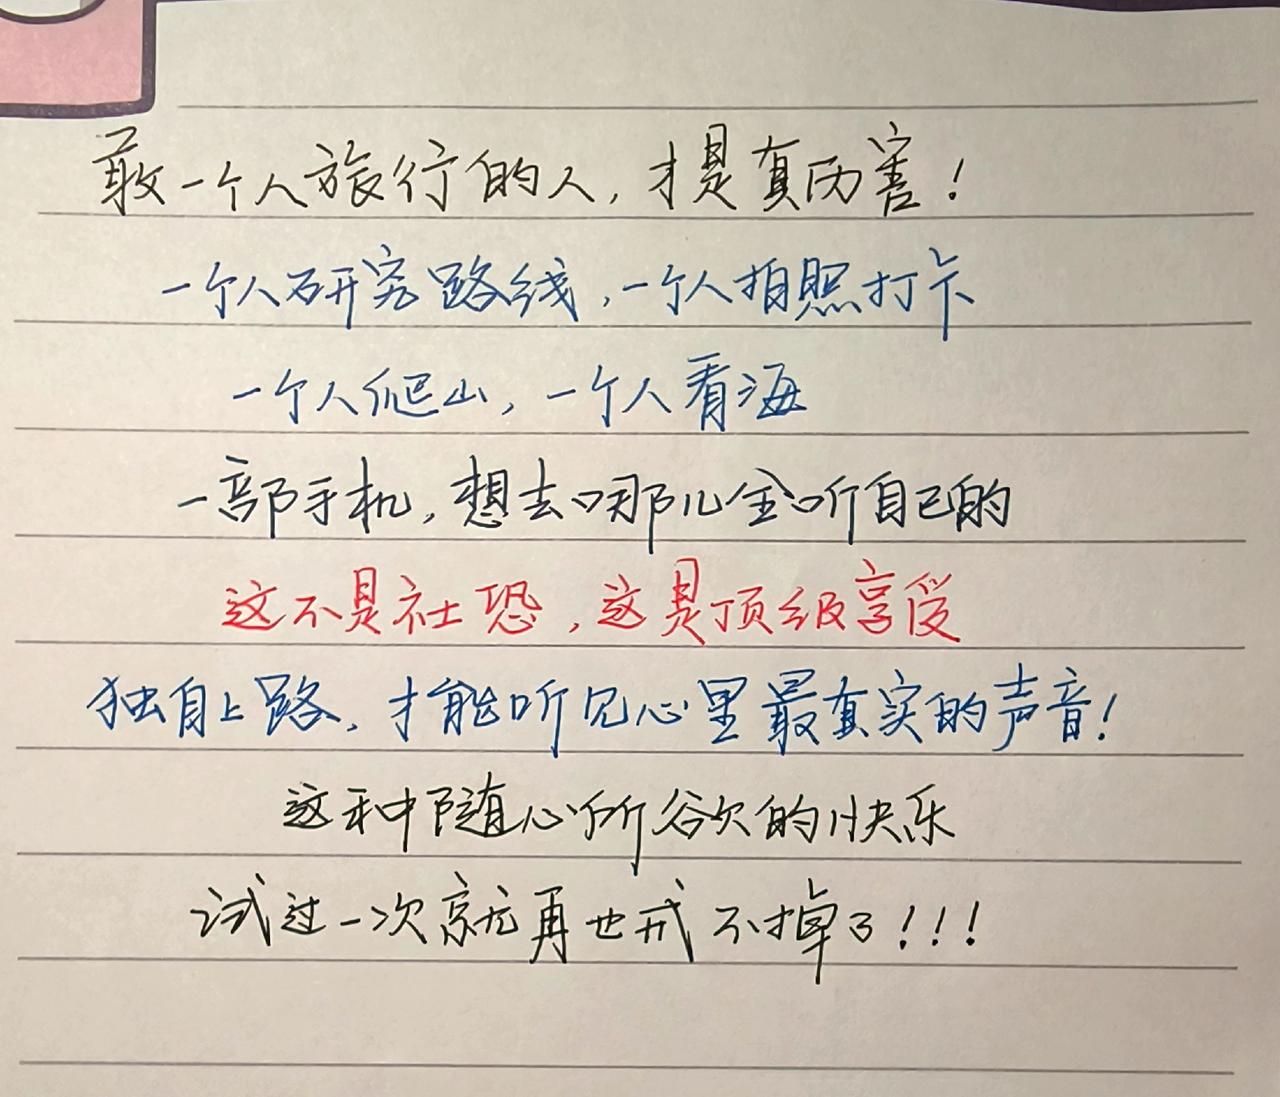 敢一个人旅行的人，才是真厉害！
一个人研究路线，一个人拍照打卡
一个人爬山，一个人看海
一部手机，想去哪儿全听自己的
这不是社恐，这是顶级享受
独自上路，才能听见心里最真实的声音！
这种随心所欲的快乐
试过一次就再也戒不掉了！！！